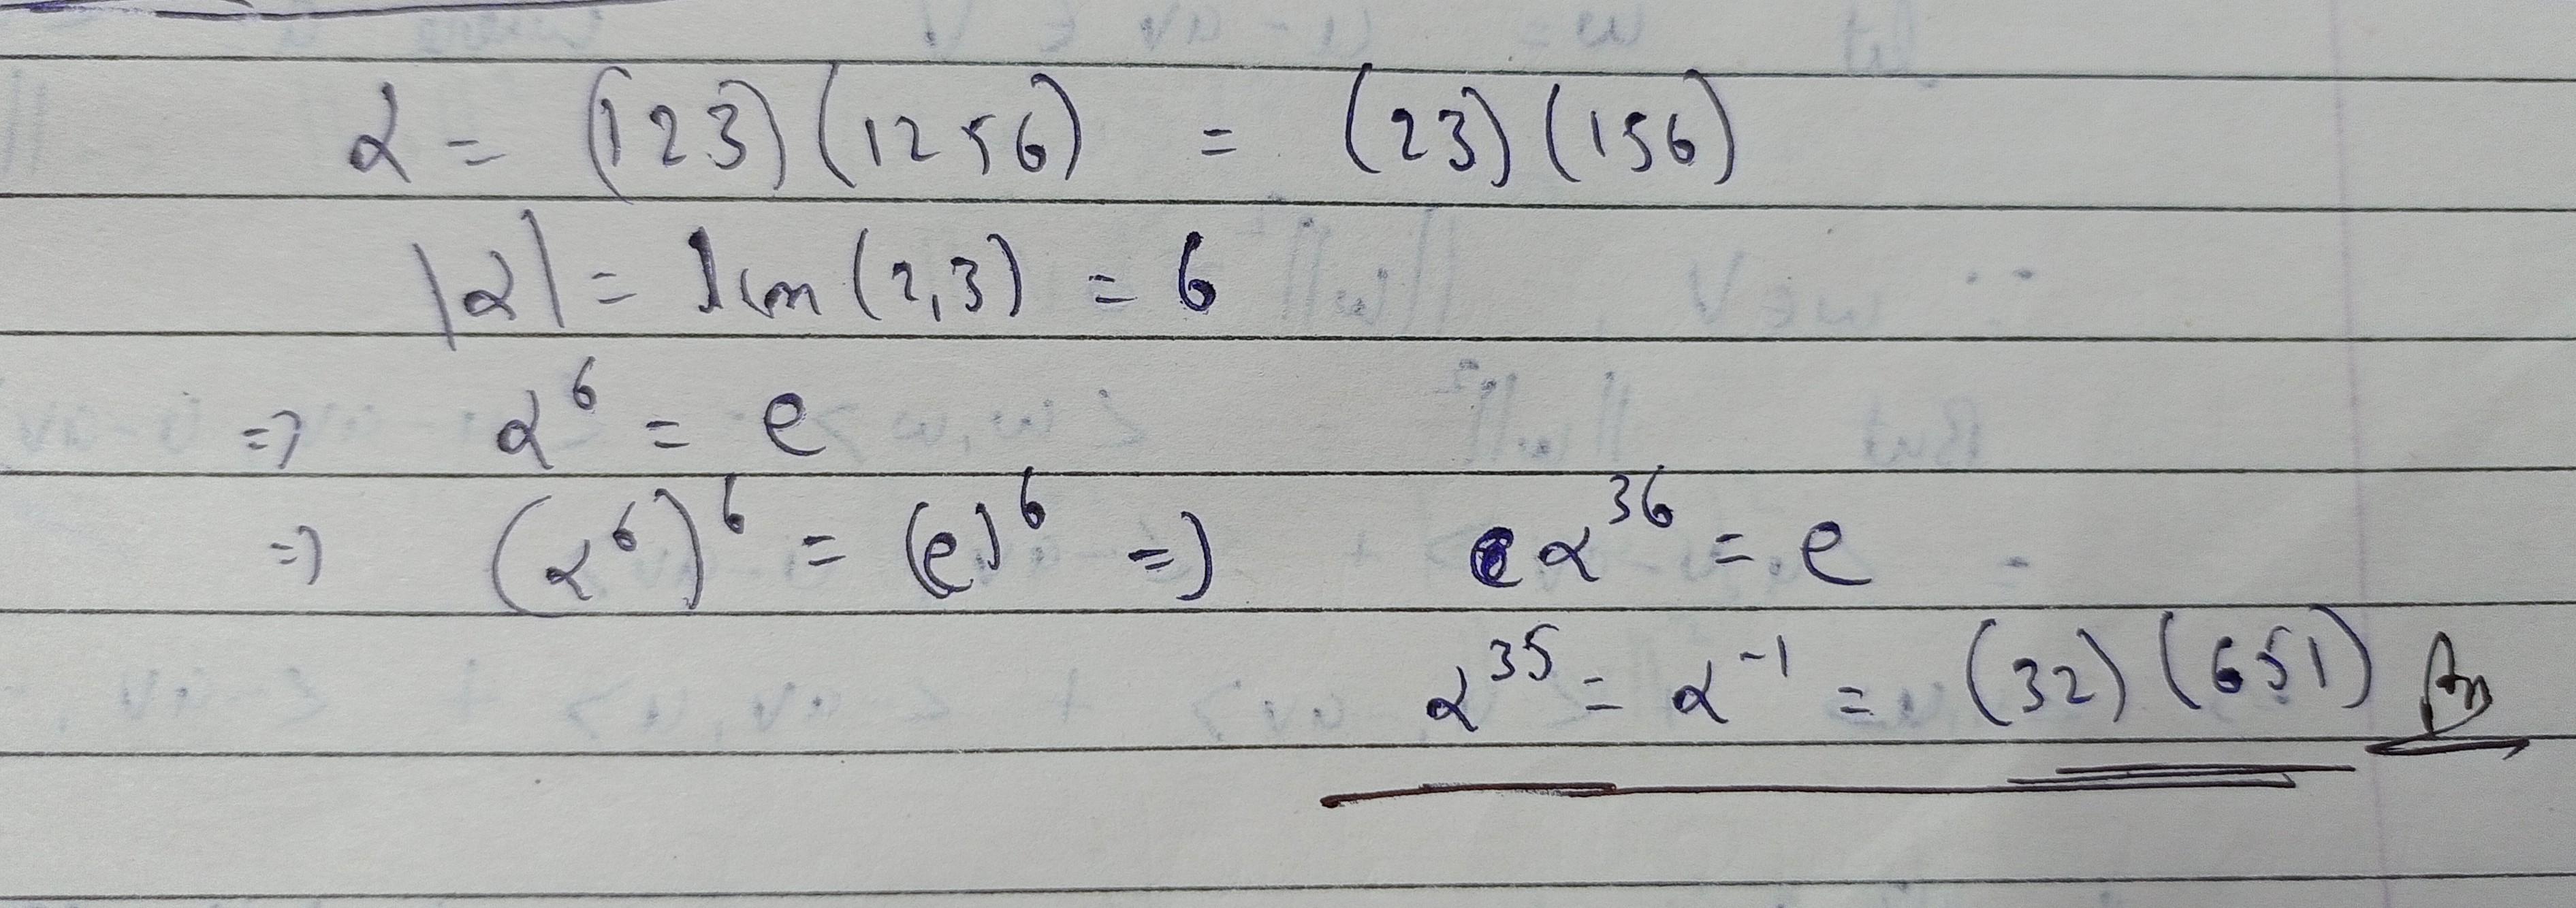 α = (123)(1256) = (23)(156)
|α| = lcm(2,3) = 6
=) α⁶ = e
=) (α⁶)⁶ = (e)⁶ =) α³⁶ = e
α³⁵ = α⁻¹ = (32)(651) An